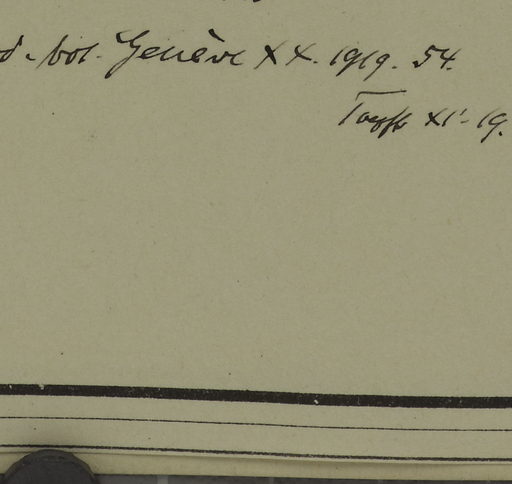 d. bot. Genève XX. 1919. 54.
XI - 19.